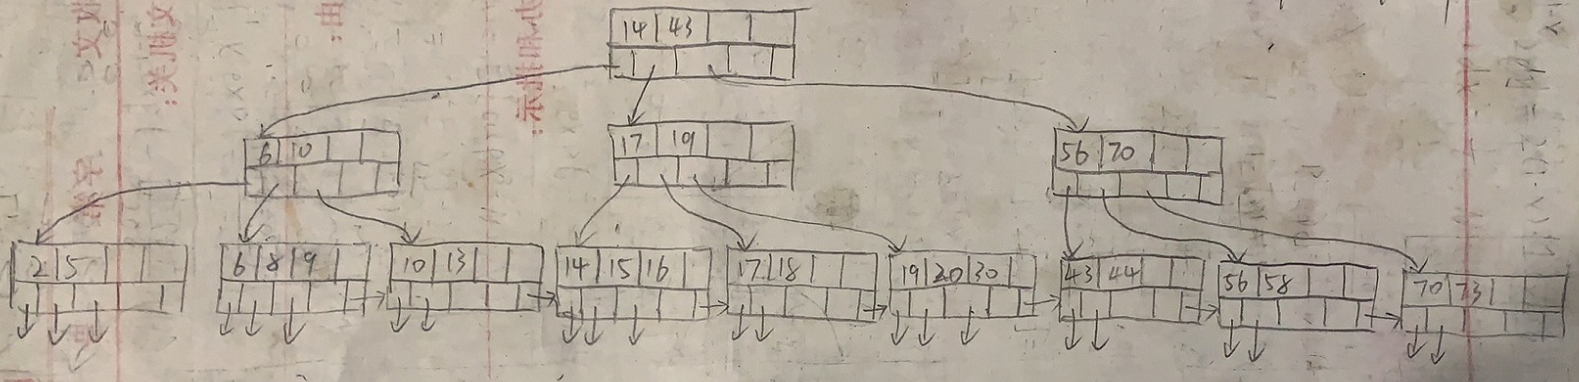 14 43
6 10
17 19
56 70
2 5
6 8 9
10 13
14 15 16
17 18
19 20 30
43 44
56 58
70 73